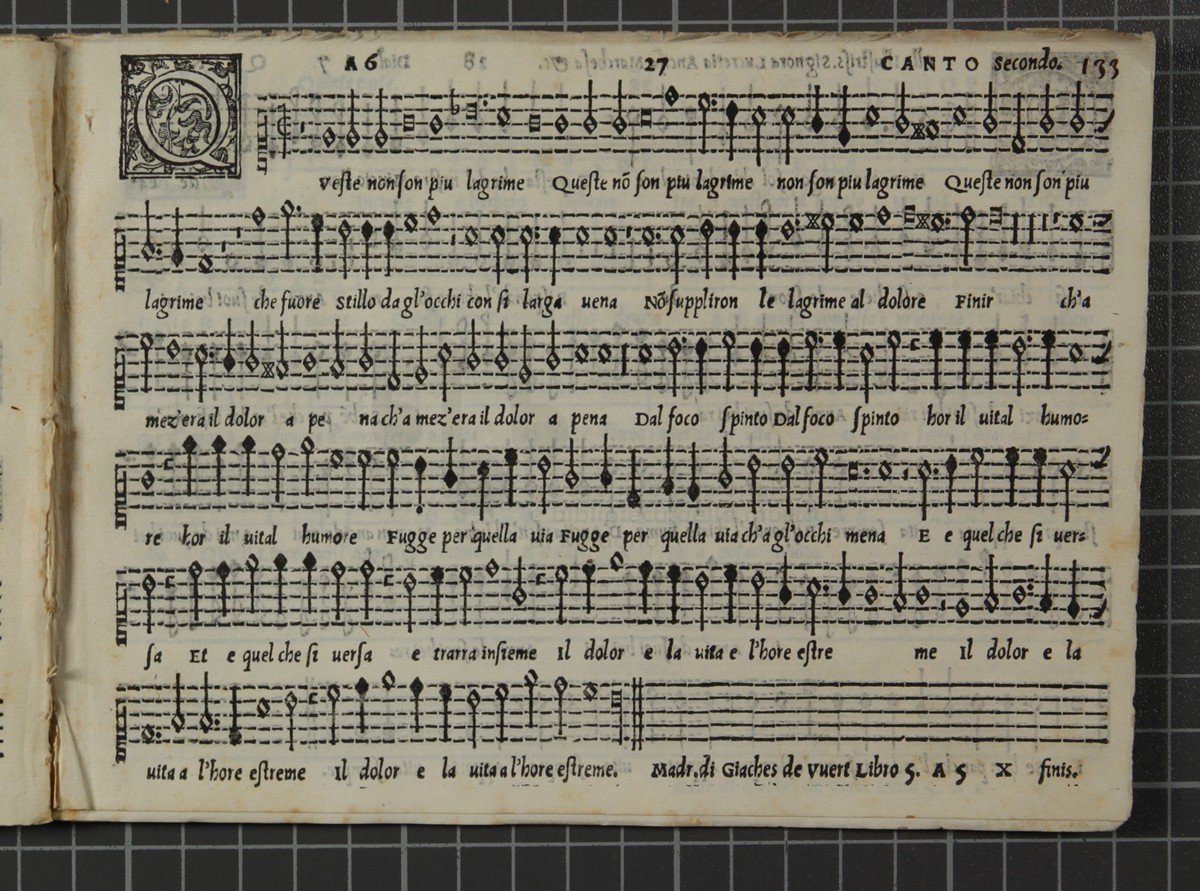 A 6 27 CANTO Secondo. 133
Q
Veste non son piu lagrime Queste nõ son piu lagrime non son piu lagrime Queste non son piu
lagrime che fuore Stillo da gl'occhi con si larga uena Nõ suppliron le lagrime al dolore Finir ch'a
mez'era il dolor a pe na ch'a mez'era il dolor a pena Dal foco spinto Dal foco spinto hor il uital humo=
re hor il uital humore Fugge per quella uia Fugge per quella uia ch'a gl'occhi mena E e quel che si uer=
sa Et e quel che si uersa e trarra insieme Il dolor e la uita e l'hore estre me Il dolor e la
uita a l'hore estreme Il dolor e la uita a l'hore estreme. Madr. di Giaches de Vuert Libro 5. A 5 X finis.